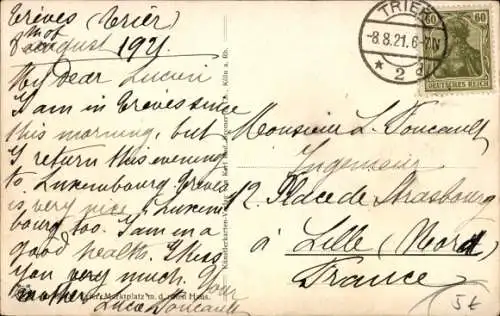 Trèves (Trier)
8th of
august 1921.
My dear Lucien
I am in Trèves since
this morning, but
I return this evening
to Luxembourg. Trèves
is very nice; Luxem-
bourg too. I am in a
good health. I kiss
you very much. Your
mother. Luce Foucault
Monsieur L. Foucault
Ingenieur
12 Place de Strasbourg
à Lille (Nord)
France
TRIER
-8.8.21. 6-7N
* 2 d
60 60
DEUTSCHES REICH
Marktplatz m. d. roten Haus.
Künstlerkarten-
Köln a. Rh.
5€